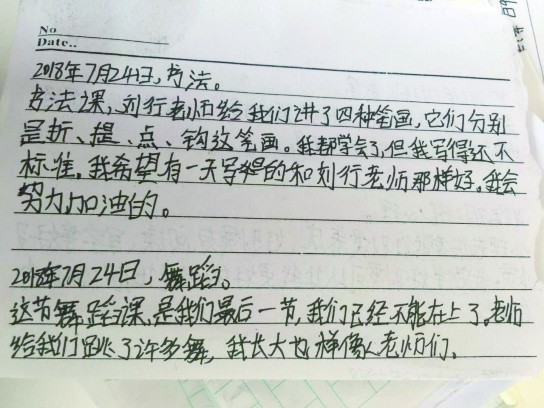 No
Date..
2018年7月24日,书法。
书法课,刘行老师给我们讲了四种笔画,它们分别
是折、提、点、钩这笔画。我都学会了,但我写得还不
标准,我希望有一天写得的和刘行老师那样好。我会
努力加油的。
2018年7月24日,舞蹈。
这节舞蹈课,是我们最后一节,我们已经不能在上了。老师
给我们跳了许多舞,我长大也,样像人老师们。